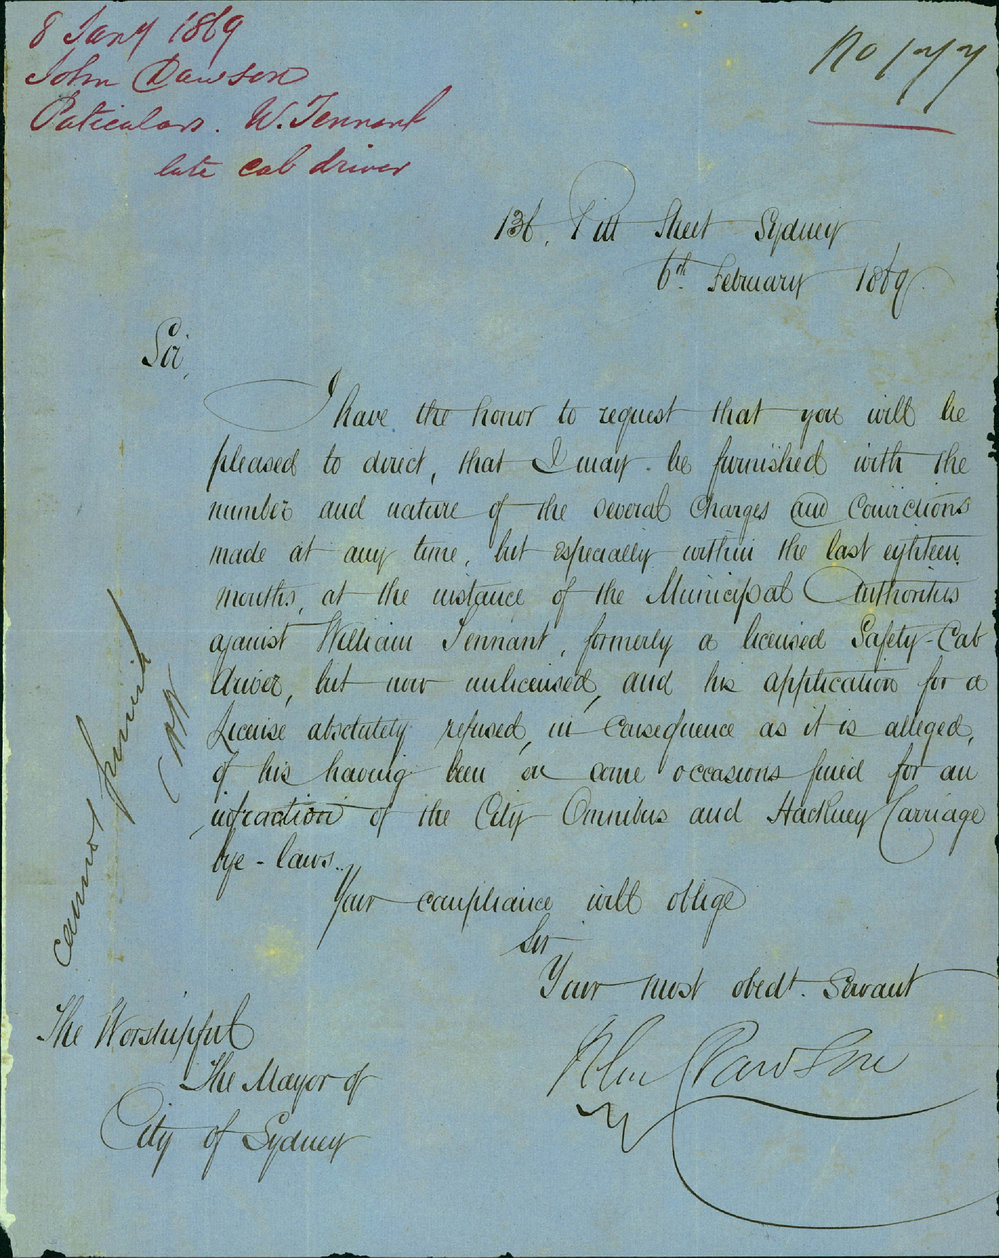 8 Jany 1869
John Dawson
Paticulars. W. Tennant
late cab driver
No 177
136, Pitt Street Sydney
6th February 1869.
Sir,
I have the honor to request that you will be
pleased to direct, that I may be furnished with the
number and nature of the several Charges and Convictions
made at any time, but especially within the last eighteen
months, at the instance of the Municipal Authorities
against William Tennant, formerly a licensed Safety-Cab
driver, but now unlicensed, and his application for a
License absolutely refused, in consequence as it is alleged,
of his having been on some occasions fined for an
infraction of the City Omnibus and Hackney Carriage
bye-laws.
Your compliance will oblige
Sir
Your most obedt. Servant
John Dawson
The Worshipful
The Mayor of
City of Sydney
cannot furnish